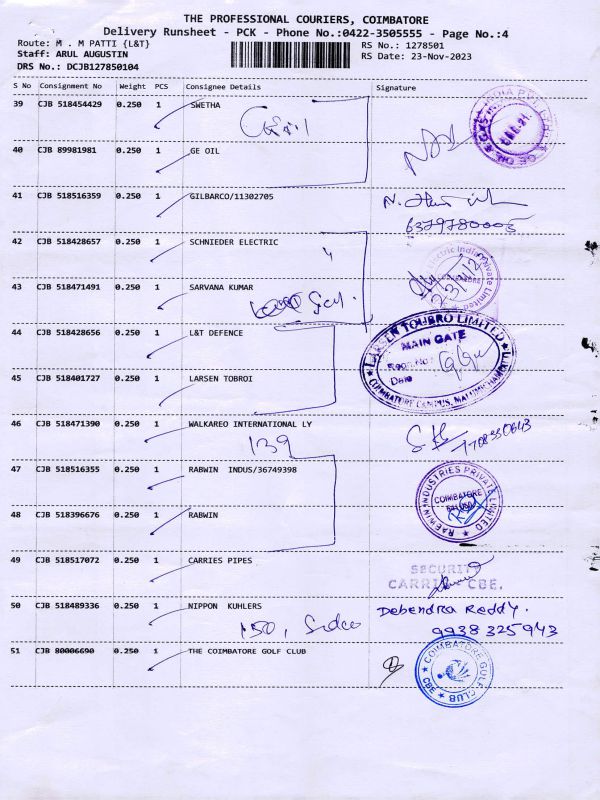 THE PROFESSIONAL COURIERS, COIMBATORE
Delivery Runsheet - PCK - Phone No.:0422-3505555 - Page No.:4
Route: M . M PATTI {L&T}
RS No.: 1278501
Staff: ARUL AUGUSTIN
RS Date: 23-Nov-2023
DRS No.: DCJB127850104
S No Consignment No Weight PCS Consignee Details Signature
39 CJB 518454429 0.250 1 SWETHA
40 CJB 89981981 0.250 1 GE OIL
41 CJB 518516359 0.250 1 GILBARCO/11302705
6379780005
42 CJB 518428657 0.250 1 SCHNIEDER ELECTRIC
43 CJB 518471491 0.250 1 SARVANA KUMAR
44 CJB 518428656 0.250 1 L&T DEFENCE
LARSEN TOUBRO LIMITED
MAIN GATE
Date
COIMBATORE CAMPUS,
45 CJB 518401727 0.250 1 LARSEN TOBROI
46 CJB 518471390 0.250 1 WALKAREO INTERNATIONAL LY
139
47 CJB 518516355 0.250 1 RABWIN INDUS/36749398
RABWIN INDUSTRIES PRIVATE LIMITED
COIMBATORE
48 CJB 518396676 0.250 1 RABWIN
49 CJB 518517072 0.250 1 CARRIES PIPES
SECURITY
CBE.
50 CJB 518489336 0.250 1 NIPPON KUHLERS
Debendra Reddy.
150, Sidco
9938325943
51 CJB 80006690 0.250 1 THE COIMBATORE GOLF CLUB
COIMBATORE GOLF CLUB
CBE